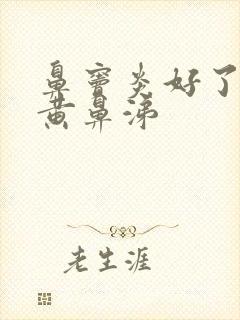 鼻窦炎好了
黄鼻涕
老生涯